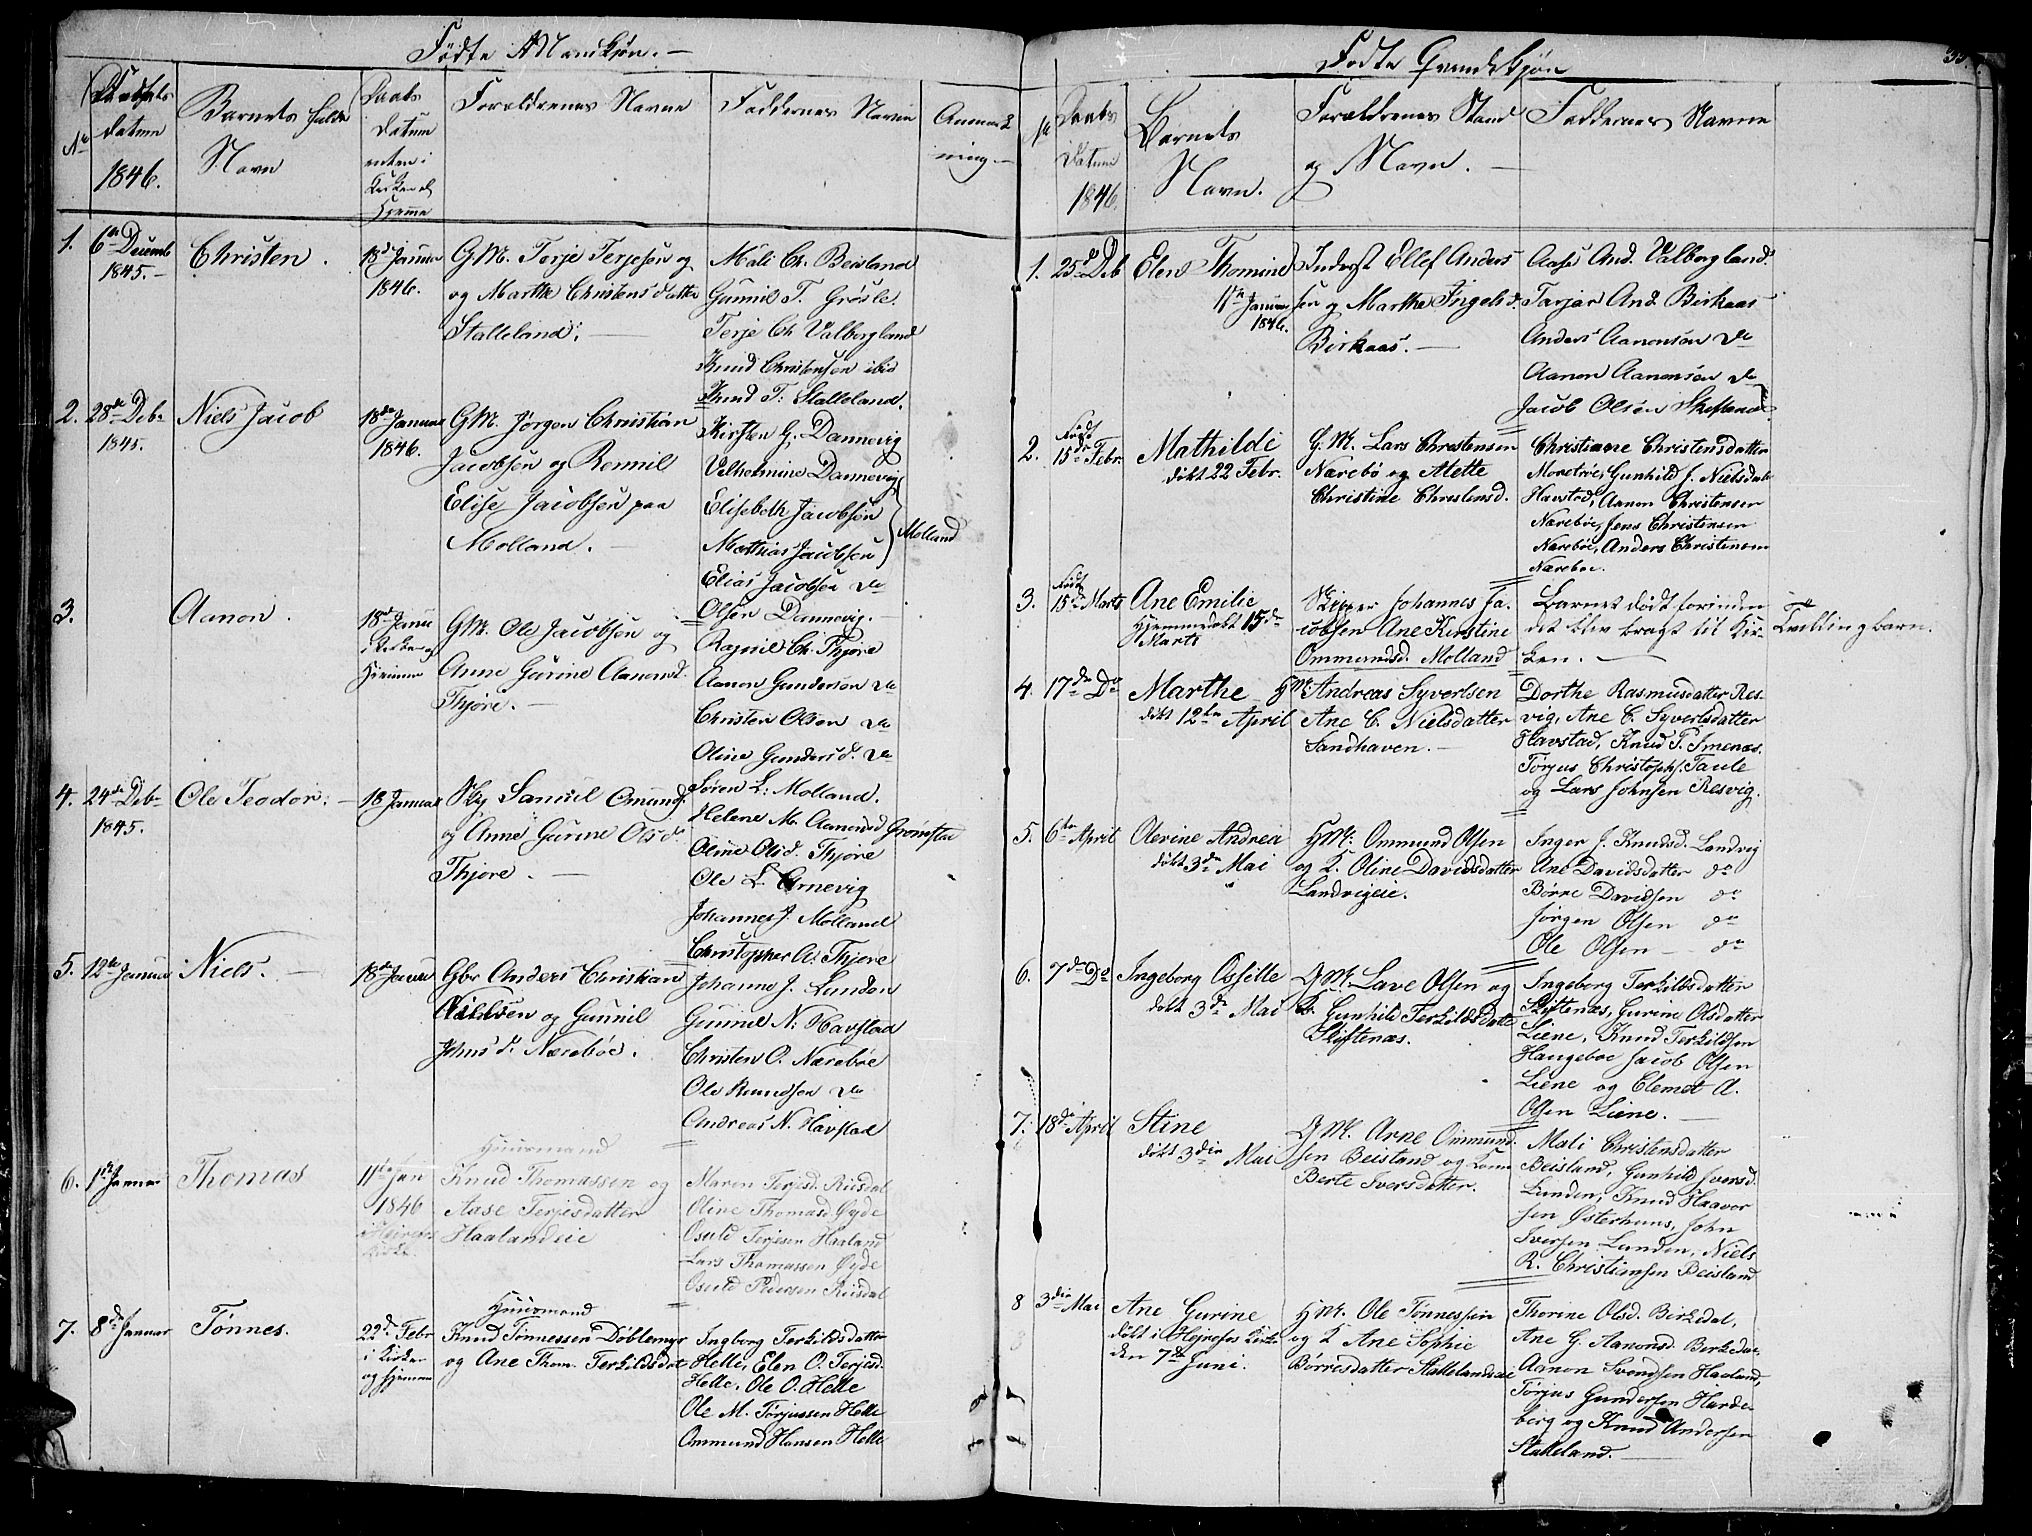 Fødte Mandkjøn. —
No
Fødsels
Datum
1846.
Barnets fulde
Navn
Daabs
Datum
enten i
Kirken el
Hjemme
Forældrenes Navne
Faddernes Navne
Anmærk
ning. —
1.
6te Decemb
1845. —
Christen.
18d Januar
1846.
G.M. Terje Terjesen og
og Marthe Christensdatter
Stalleland.
Mali Ch. Beisland
Gunnil T. Grøsle
Terje Ch. Valborgland
Knud Christensen ibid
Knud T. Stalleland.
2.
28de Deb.
1845.
Niels Jacob
18de Januar
1846.
G.M. Jørgen Christian
Jacobsen og Rennil
Elise Jacobsen paa
Molland. —
Kirsten G. Dannevig
Vilhelmine Dannevig
Elisebeth Jacobsen
Mathias Jacobsen
Molland
Elias Jacobsen do
Olsen Dannevig. —
3.
Aanon.
18d Janu
i Kirken og
Hjemme
G.M. Ole Jacobsen og
Anne Gurine Aanonsd.
Thjøre. —
Ragnil Ch. Thjøre
Aanon Gundersen do
Christen Olsen do
Oline Gundersd. do
4.
24de Deb.
1845.
Ole Teodor. —
18 Januar
Skp Samuel Omunds.
og Anne Gurine Olsd.
Thjøre. —
Søren L. Molland.
Helene M. Aanonsd Grømstad
Oline Olsd. Thjøre
Ole L. Arnevig
Johannes J. Molland
Christopher A. Thjøre
5.
12te Januar
Niels. —
18de Januar
Gbr Anders Christian
Nielsen og Gunnil
Johnsd. Nærebøe.
Johanne J. Lunden
Gunnil N. Havstad
Christen O. Nærebøe
Ole Knudsen do
Andreas N. Havstad
6.
1ste Januar
Thomas
11te Jan
1846
i Hejrefos
Kirke
Huusmand
Knud Thomassen og
Aase Terjesdatter
Haalandeie
Maren Terjesd. Riisdal
Oline Thomasd. Øyde
Osuld Terjesen Haaland
Lars Thomassen Øyde
Osuld Pedersen Riisdal
7.
8de Januar
Tønnes.
22d Febr
i Kirken
og Hjemme
Huusmand
Knud Tønnessen Døblemyr
og Ane Thom. Terkildsdat
Ingborg Terkildsdatter
Helle, Elen O. Terjesd.
Helle, Ole O. Helle
Ole M. Torjussen Helle
Ommund Hansen Helle
Fødte Qvindekjøn
No
Daabs
Datum
1846.
Barnets
Navn.
Forældrenes Stand
og Navn. —
Faddernes Navne
1.
25de Deb
Elen Thomine
11te Januar
1846.
Inderst Ellef Anders
sen og Marthe Ingelsd.
Birkaas. —
Aase And. Valborgland.
Tarjar And. Birkaas
Anders Aanonsen do
Aanon Aanonsen do
Jacob Olsen Skiftenæs
2.
Født
15de Febr.
Mathilde
døbt 22 Febr.
G.M. Lars Christensen
Nærebø og Mette
Christine Christensd.
Christiane Christensdatter
Moretrøe, Gunhild J. Nielsdatter
Havstad, Aanon Christensen
Nærebøe, Jens Christensen
Nærebøe, Anders Christensen
Nærebøe.
3.
Født
15de Marts
Ane Emilie
Hjemmedøbt 15de
Marts
Skipper Johannes Ja-
cobsen Ane Kirstine
Ommundsd. Molland
Barnet døde forinden
det blev bragt til Kir-
ken. —
Tvillingbarn.
4.
17de Do
Marthe
døbt 12te April
GM Andreas Syvertsen
Ane C. Nielsdatter
Sandhaven. —
Dorthe Rasmusdatter Res-
vig, Ane C. Syvertsdatter
Havstad, Knud P. Imenæs.
Torjus Christophs. Taule
og Lars Johnsen Resvig.
5.
6te April
Olevine Andrea
døbt 3de Mai
HM: Ommund Olsen
og K. Oline Davidsdatter
Landvigeie.
Inger J. Knudsd. Landvig
Ane Davidsdatter do
Børre Davidsen do
Jørgen Olsen do
Ole Olsen — do
6.
7de Do
Ingeborg Ossille
døbt 3de Mai
GM. Lave Olsen og
K. Gunhild Terkildsdatter
Skiftenæs.
Ingeborg Terkildsdatter
Skiftenæs, Gurine Olsdatter
Liene, Knud Terkildsen
Haugeboe Jacob Olsen
Liene og Clemet A.
Olsen Liene. —
7.
18de April
Stine
døbt 3die Mai
GM. Arne Ommund
sen Beisland og Kone
Berte Iversdatter.
Mali Christensdatter
Beisland, Gunhild Iversd.
Lunden, Knud Haavor
sen Østerhuus, John
Iversen Lunden, Niels
R. Christiansen Beisland
8
3die Mai
Ane Gurine
døbt i Hejrefos Kirke
den 7de Juni.
HM. Ole Tønnessen
og K Ane Sophie
Børresdatter Stallelandseie
Thorine Olsd. Birkdal,
Ane G. Aanonsd. Birkedal
Aanon Svendsen Haaland,
Torjus Gundersen Harde-
berg og Knud Andersen
Stalleland. —